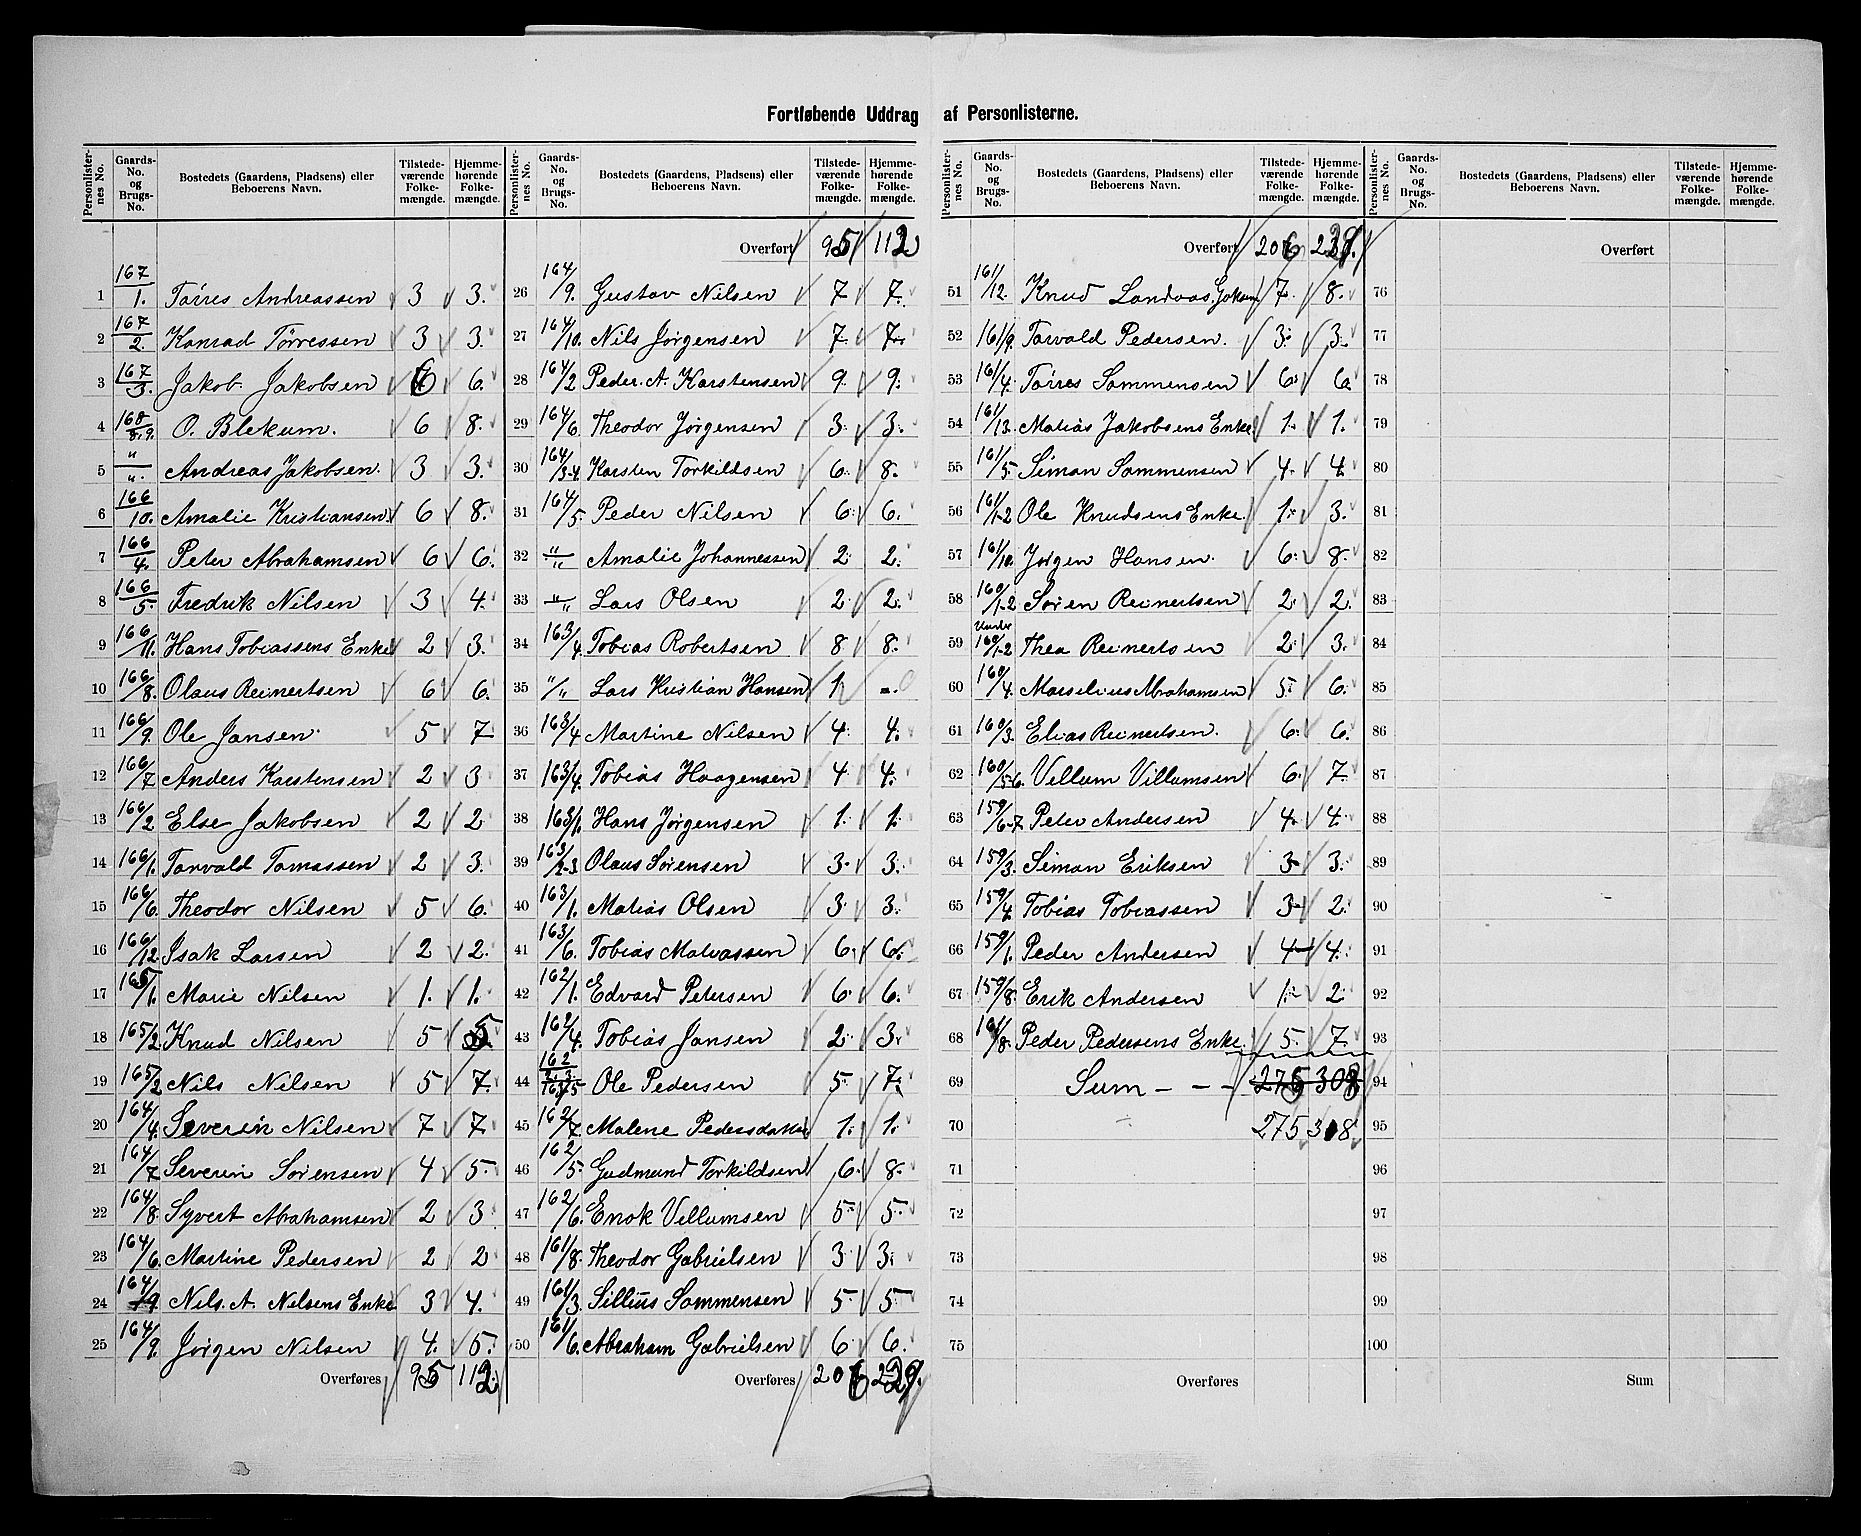 Fortløbende Uddrag af Personlisterne.
Personlisternes No. Gaards-No. og Brugs-No. Bostedets (Gaardens, Pladsens) eller Beboerens Navn. Tilstedeværende Folkemængde. Hjemmehørende Folkemængde.
1 167/1. Tørres Andreassen 3 3.
2 167/2. Konrad Tørressen 3 3.
3 167/3. Jakob Jakobsen 6 6.
4 168/8.9. O. Blekum. 6 8.
5 "/". Andreas Jakobsen. 3 3.
6 166/10. Amalie Kristiansen 6 8.
7 166/4. Peter Abrahamsen 6 6.
8 166/5. Fredrik Nilsen 3 4.
9 166/11. Hans Tobiassens Enke 2 3.
10 166/8. Olaus Reinertsen 6 6.
11 166/9. Ole Jansen. 5 7
12 166/7 Anders Karstensen 2 3
13 166/2 Else Jakobsen 2 2
14 166/1. Torvald Tomassen 2 3.
15 166/6. Theodor Nilsen 5 6.
16 166/12. Isak Larsen 2 2.
17 165/1. Marie Nilsen 1. 1.
18 165/2. Knud Nilsen 5 5
19 165/2 Nils Nilsen 5 7.
20 164/4. Severin Nilsen 7 7.
21 164/7 Severin Sørensen 4 5.
22 164/8. Syvert Abrahamsen 2 3.
23 164/6. Martine Pedersen 2 2
24 164/9. Nils. A. Nilsens Enke 3 4.
25 164/9. Jørgen Nilsen 4. 5.
Overføres 95 112
Personlisternes No. Gaards-No. og Brugs-No. Bostedets (Gaardens, Pladsens) eller Beboerens Navn. Tilstedeværende Folkemængde. Hjemmehørende Folkemængde.
Overført 95 112
26 164/9. Gustav Nilsen 7 7.
27 164/10. Nils Jørgensen 7. 7.
28 164/2 Peder. A. Karstensen 9. 9.
29 164/6. Theodor Jørgensen 3. 3.
30 164/3-4 Karsten Torkildsen 6. 8.
31 164/5. Peder Nilsen 6. 6.
32 "/" Amalie Johannessen 2. 2.
33 "/" Lars Olsen 2. 2.
34 163/4. Tobias Robertsen 8 8.
35 "/" Lars Kristian Hansen 1 - 0
36 163/4 Martine Nilsen 4. 4.
37 163/4. Tobias Haagensen 4. 4.
38 163/1. Hans Jørgensen 1. 1.
39 163/2-3 Olaus Sørensen 3. 3.
40 163/1. Matias Olsen 3. 3.
41 163/6. Tobias Matiassen 6. 6.
42 162/1. Edvard Petersen 6. 6.
43 162/4. Tobias Jansen 2. 3.
44 162/2.3. 163/5 Ole Pedersen 5. 7.
45 162/7. Malene Pedersdatter 1. 1.
46 162/5. Gudmund Torkildsen 6. 8.
47 162/6. Enok Villumsen 5. 5.
48 161/8. Theodor Gabrielsen 3. 3.
49 161/3. Sillius Sommensen 5. 5.
50 161/6. Abraham Gabrielsen 6. 6.
Overføres 206 229.
Personlisternes No. Gaards-No. og Brugs-No. Bostedets (Gaardens, Pladsens) eller Beboerens Navn. Tilstedeværende Folkemængde. Hjemmehørende Folkemængde.
Overført 206
51 161/12. Knud Landaas 7. 8.
52 161/9. Torvald Pedersen. 3. 3.
53 161/4. Tørres Sommensen 6. 6.
54 161/13. Matias Jakobsens Enke 1. 1.
55 161/5. Simon Sommensen 4. 4.
56 161/1-2 Ole Knudsens Enke. 1. 3.
57 161/10. Jørgen Hansen. 6. 8.
58 160/1-2 Søren Reinertsen 2. 2.
59 Under 160/1-2 Thea Reinertsen 2. 3.
60 160/4. Marselius Abrahamsen 5. 6.
61 160/3. Elias Reinertsen. 6. 6.
62 160/5-6. Villum Villumsen 6. 7.
63 159/6-7 Peter Andersen 4. 4.
64 159/3. Simon Eriksen 3. 3.
65 159/4. Tobias Tobiassen 3. 2.
66 159/1. Peder Andersen 4 4.
67 159/8. Erik Andersen 1. 2.
68 161/8. Peder Pedersens Enke. 5. 7.
69 Sum - - - 275 308
70 275 308
71
72
73
74
75
Overføres
Personlisternes No. Gaards-No. og Brugs-No. Bostedets (Gaardens, Pladsens) eller Beboerens Navn. Tilstedeværende Folkemængde. Hjemmehørende Folkemængde.
Overført
76
77
78
79
80
81
82
83
84
85
86
87
88
89
90
91
92
93
94
95
96
97
98
99
100
Sum